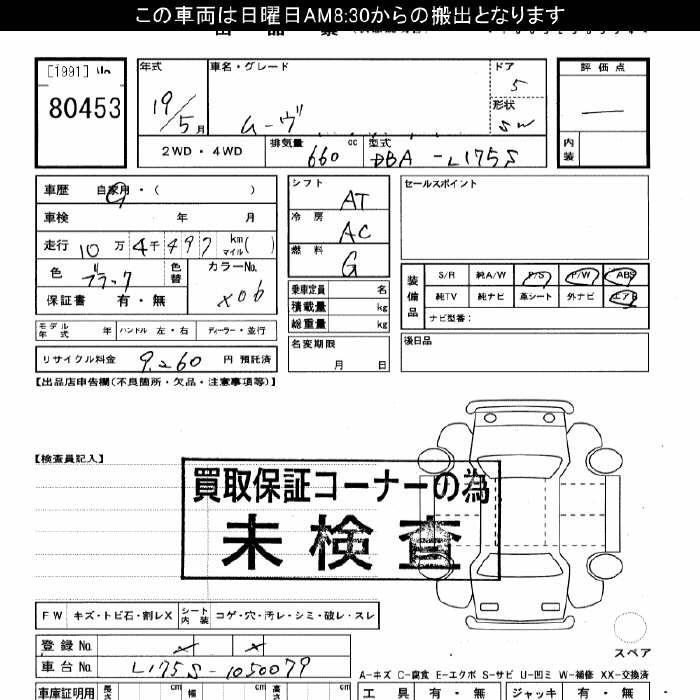 この車両は日曜日AM8:30からの搬出となります
[1991]
80453
年式
19/5月
車名・グレード
ムーヴ
ドア
5
形状
SW
評価点
—
内装
2WD・4WD
排気量
660 cc
型式
DBA-L175S
車歴 自家用・( )
車検 年 月
走行 10万4千497 km マイル( )
色 ブラック 色替
カラーNo. X06
保証書 有・無
モデル年式 年 ハンドル 左・右 ディーラー・並行
リサイクル料金 9,260 円 預託済
シフト AT
冷房 AC
燃料 G
乗車定員 名
積載量 kg
総重量 kg
名変期限
月 日
セールスポイント
装備品
S/R 純A/W P/S P/W ABS
純TV 純ナビ 革シート 外ナビ エアB
ナビ型番:
後日品
【出品店申告欄(不良箇所・欠品・注意事項等)】
【検査員記入】
買取保証コーナーの為
未検査
FW キズ・トビ石・割レX シート内装 コゲ・穴・汚レ・シミ・破レ・スレ
スペア
登録No.
車台No. L175S-1050079
A-キズ C-腐食 E-エクボ S-サビ U-凹ミ W-補修 XX-交換済
車庫証明用 長さ cm 幅 cm 高さ cm
工具 有・無 ジャッキ 有・無